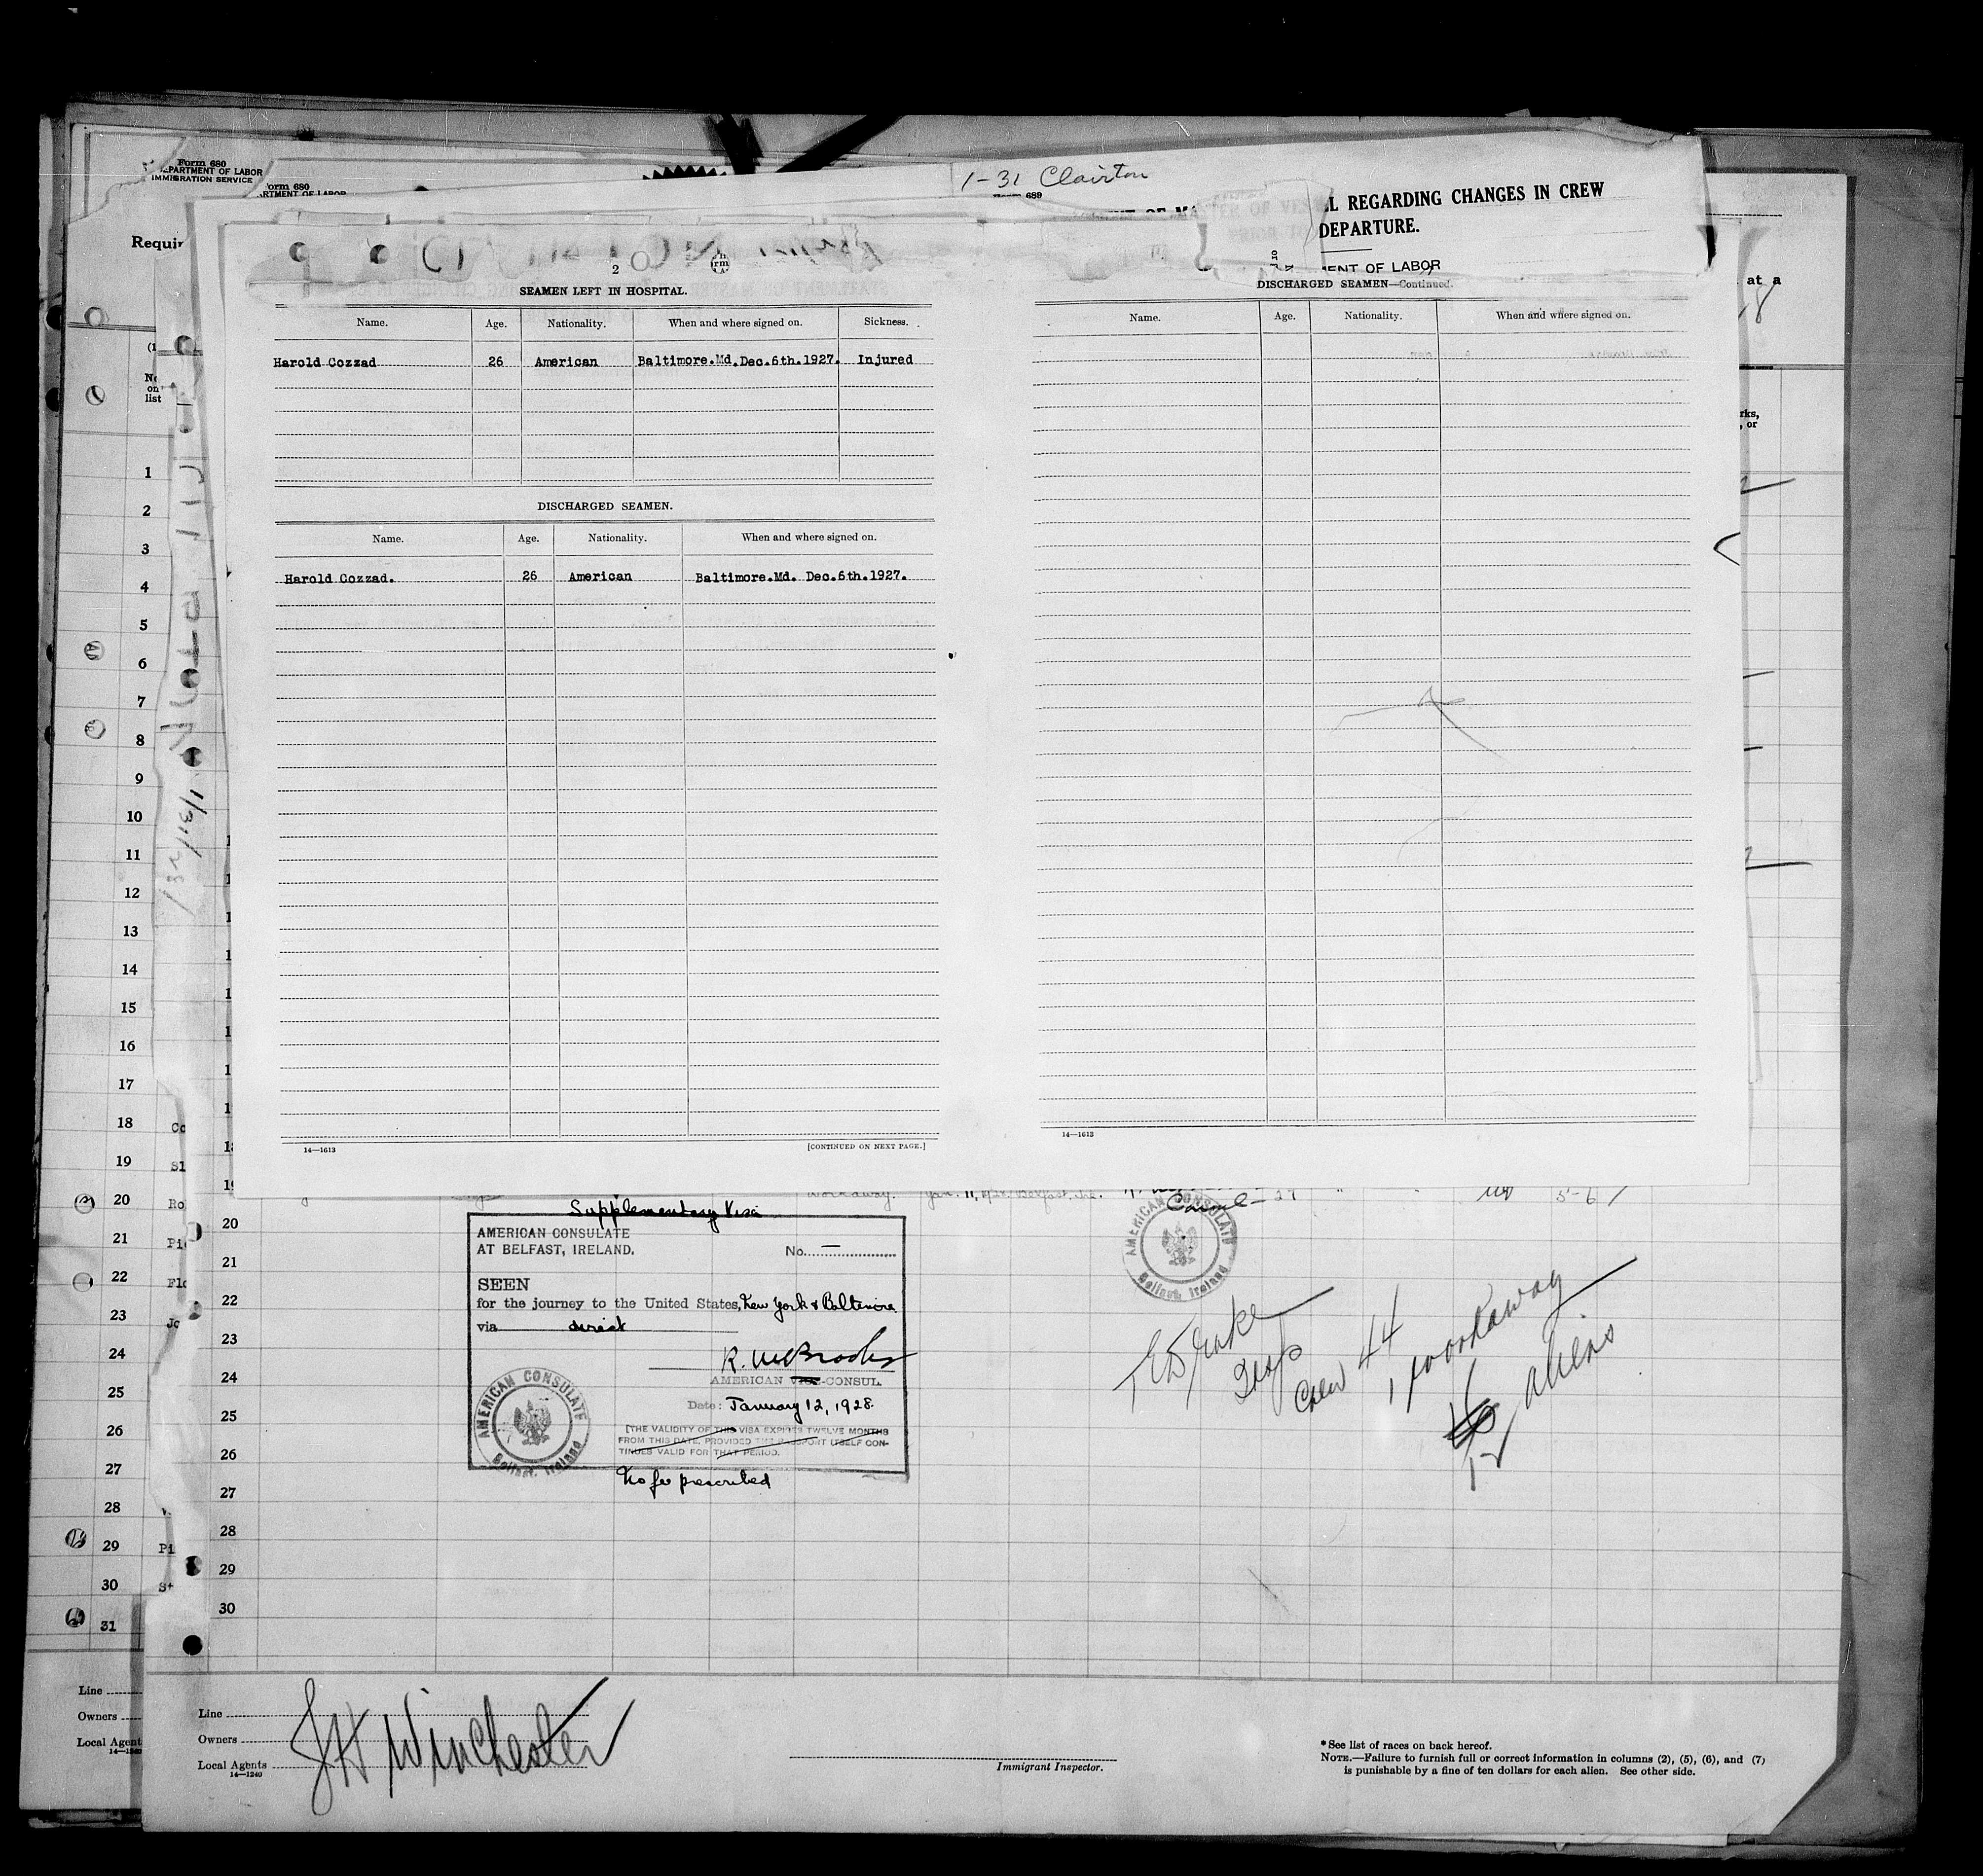 Form 680
DEPARTMENT OF LABOR
IMMIGRATION SERVICE
Form 680
1-31 Clairton
689
REGARDING CHANGES IN CREW
DEPARTURE.
OF LABOR
2
SEAMEN LEFT IN HOSPITAL.
Name. Age. Nationality. When and where signed on. Sickness.
Harold Cozzad 26 American Baltimore.Md.Dec.6th.1927. Injured
DISCHARGED SEAMEN.
Name. Age. Nationality. When and where signed on.
Harold Cozzad. 26 American Baltimore.Md. Dec.6th.1927.
14—1613 [CONTINUED ON NEXT PAGE.]
DISCHARGED SEAMEN—Continued.
Name. Age. Nationality. When and where signed on.
14—1613
at a
No
on
list
1
2
3
4
5
6
7
8
9
10
11
12
13
14
15
16
17
18
19
20
21
22
23
24
25
26
27
28
29
30
31
1/31/28
Workaway. Jan. 11, Belfast, Ire.
5-6
20
21
22
23
24
25
26
27
28
29
30
Supplementary Visa
AMERICAN CONSULATE
AT BELFAST, IRELAND. No. —
SEEN
for the journey to the United States, New York & Baltimore
via direct
AMERICAN VICE-CONSUL
Date: January 12, 1928.
[THE VALIDITY OF THIS VISA EXPIRES TWELVE MONTHS
FROM THIS DATE, PROVIDED THE PASSPORT ITSELF CON-
TINUES VALID FOR THAT PERIOD.
No fee prescribed
AMERICAN CONSULATE
Belfast, Ireland
AMERICAN CONSULATE
Belfast, Ireland
Crew 44
1 workaway
aliens
12
Line
Owners
Local Agents
Line
Owners
Local Agents
14—1240
JH Winchester
Immigrant Inspector.
*See list of races on back hereof.
NOTE.—Failure to furnish full or correct information in columns (2), (5), (6), and (7)
is punishable by a fine of ten dollars for each alien. See other side.